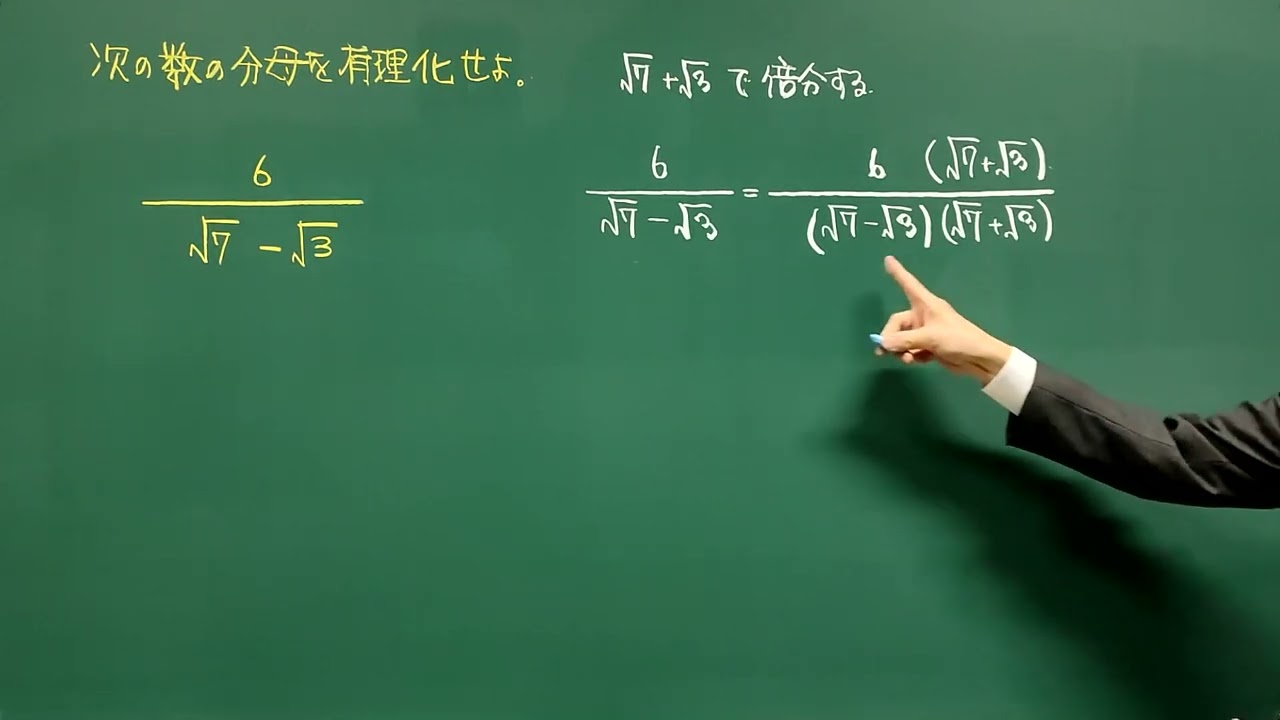 次の数の分母を有理化せよ。
6
√7 - √3
√7 + √3 で 倍分する.
6/(√7 - √3) = 6 (√7 + √3)/((√7 - √3)(√7 + √3))